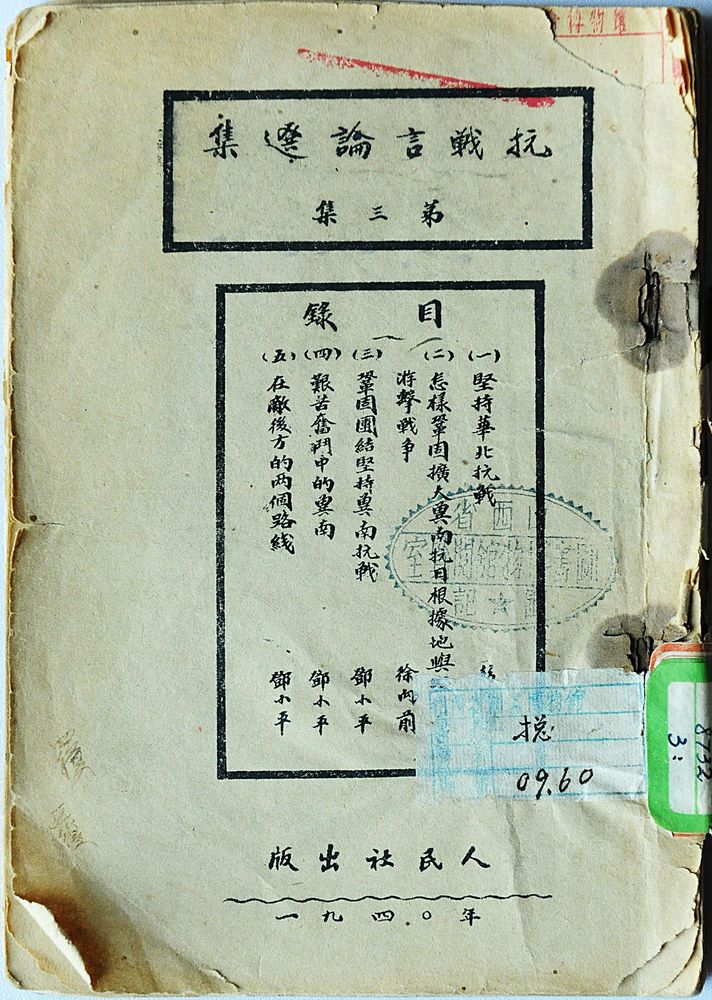 抗戰言論選集
第三集
目錄
(一)堅持華北抗戰
(二)怎樣鞏固擴大冀南抗日根據地與
游擊戰争 徐向前
(三)鞏固團結堅持冀南抗戰 鄧小平
(四)艱苦奮鬥中的冀南 鄧小平
(五)在敵後方的两個路綫 鄧小平
人民社出版
一九四〇年
博物館
西省
物館圖
室
記
總
09.60
8732
3: